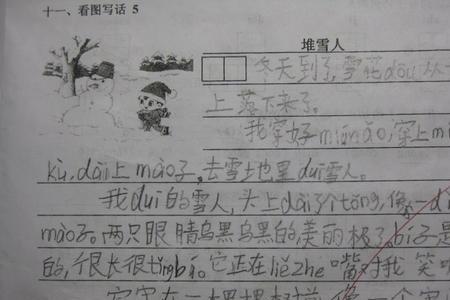 十一、看图写话 5
堆雪人
冬天到了,雪花dōu从一
上落下来了。
我穿好mián ǎo,穿上mi
kù,dài上mào子,去雪地里duī雪人。
我duī的雪人,头上dài了个tǒng,像一d
mào子。两只眼睛乌黑乌黑的,美丽极了。bí子是
的,很长很tǐng bá。它正在liězhe嘴对我笑